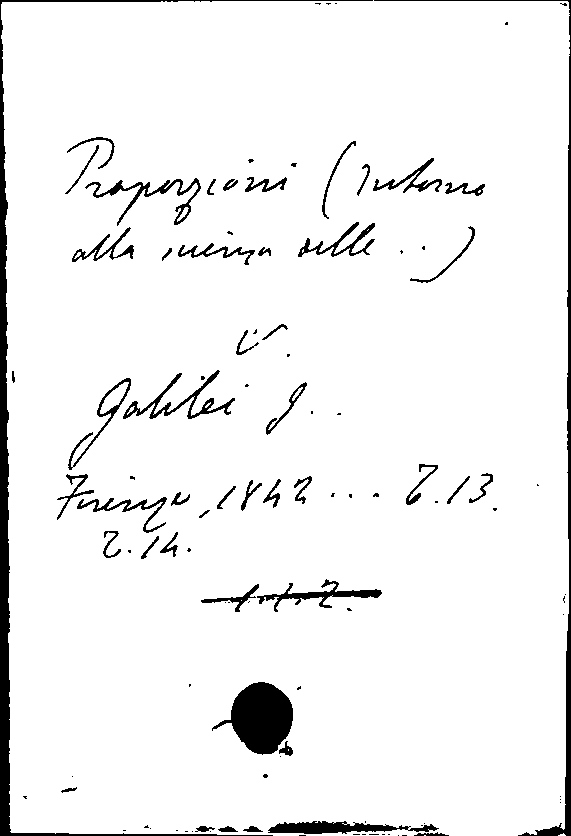 Proporzioni (Intorno
alla scienza delle ..)
v.
Galilei G..
Firenze, 1842 ... T. 13.
T. 14.